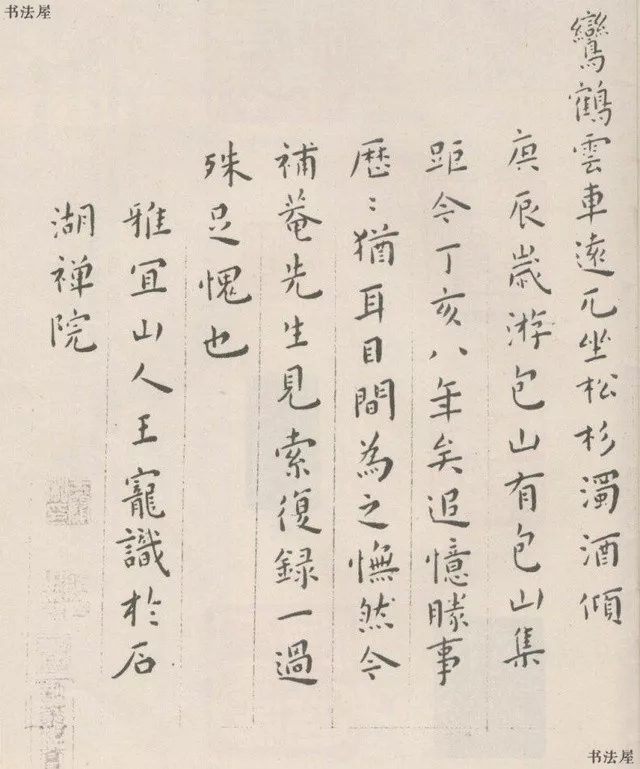 书法屋
鸞鶴雲車遠兀坐松杉濁酒傾
庚辰歲游包山有包山集
距今丁亥八年矣追憶勝事
歷〻猶耳目間為之憮然今
補菴先生見索復録一過
殊足愧也
雅宜山人王寵識於石
湖禅院
书法屋